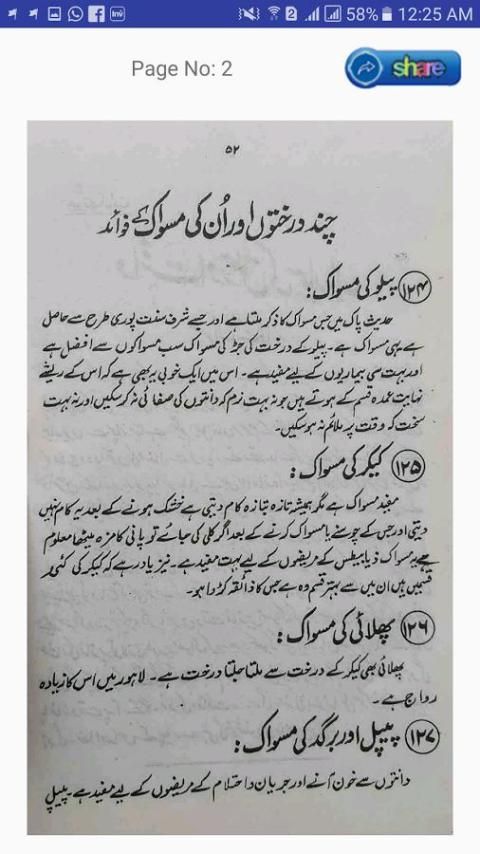 58% 12:25 AM
Page No: 2
share
۵۲
چند درختوں اور اُن کی مسواک کے فوائد
۱۲۴ پیلو کی مسواک:
حدیث پاک میں جس مسواک کا ذکر ملتا ہے اور جسے شرف سنت پوری طرح سے حاصل
ہے یہی مسواک ہے۔ پیلو کے درخت کی جڑ کی مسواک سب مسواکوں سے افضل ہے
اور بہت سی بیماریوں کے لیے مفید ہے۔ اس میں ایک خوبی یہ بھی ہے کہ اس کے ریشے
نہایت عمدہ قسم کے ہوتے ہیں جو نہ بہت نرم کہ دانتوں کی صفائی نہ کر سکیں اور نہ بہت
سخت کہ وقت پر ملائم نہ ہو سکیں۔
۱۲۵ کیکر کی مسواک:
مفید مسواک ہے مگر ہمیشہ تازہ بتازہ کام دیتی ہے خشک ہونے کے بعد یہ کام نہیں
دیتی اور جس کے چوسنے یا مسواک کرنے کے بعد اگر کلی کی جائے تو پانی کا مزہ میٹھا معلوم
یہ مسواک ذیابیطس کے مریضوں کے لیے بہت مفید ہے۔ نیز یاد رہے کہ کیکر کی کئی
قسمیں ہیں ان میں سے بہتر قسم وہ ہے جس کا ذائقہ کڑوا ہو۔
۱۲۶ پھلائی کی مسواک:
پھلائی بھی کیکر کے درخت سے ملتا جلتا درخت ہے۔ لاہور میں اس کا زیادہ
رواج ہے۔
۱۲۷ پیپل اور برگد کی مسواک:
دانتوں سے خون آنے اور جریان و احتلام کے مریضوں کے لیے مفید ہے۔ پیپل